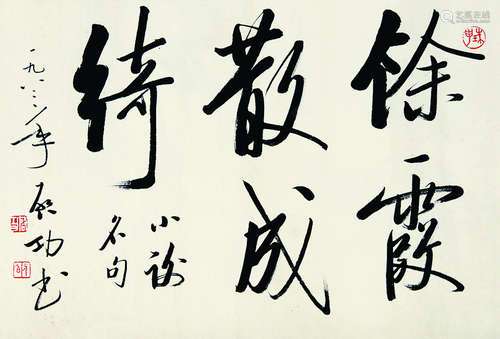 餘霞
散成
綺
小謝
名句
一九八三年
启功书